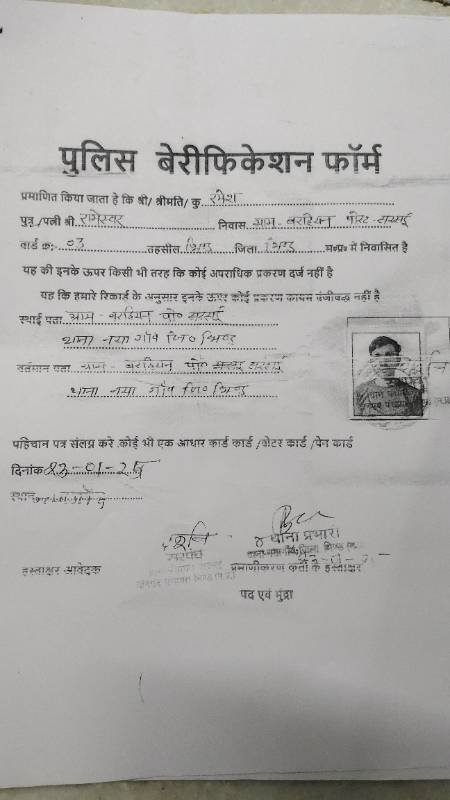 पुलिस बेरीफिकेशन फॉर्म
प्रमाणित किया जाता है कि श्री/ श्रीमति/ कु. रमेश
पुत्र /पत्नी श्री रामेश्वर निवास ग्राम- बरहियन पोस्ट-
वार्ड क्र:- 03 तहसील भिण्ड जिला भिण्ड म०प्र० में निवासित है
यह की इनके ऊपर किसी भी तरह कि कोई अपराधिक प्रकरण दर्ज नहीं है
यह कि हमारे रिकार्ड के अनुसार इनके ऊपर कोई प्रकरण कायम पंजीवद्ध नहीं है
स्थाई पता ग्राम - बरहियन पो०
थाना नया गाँव जि० भिण्ड
वर्तमान पता ग्राम - बरहियन पो०
थाना नया गाँव जि० भिण्ड
पहिचान पत्र संलग्न करे कोई भी एक आधार कार्ड कार्ड /वोटर कार्ड /पेन कार्ड
दिनांक 23-01-25
स्थान
थाना प्रभारी
सरपंच
हस्ताक्षर आवेदक प्रमाणीकरण कर्ता के हस्ताक्षर
पद एवं मुंद्रा